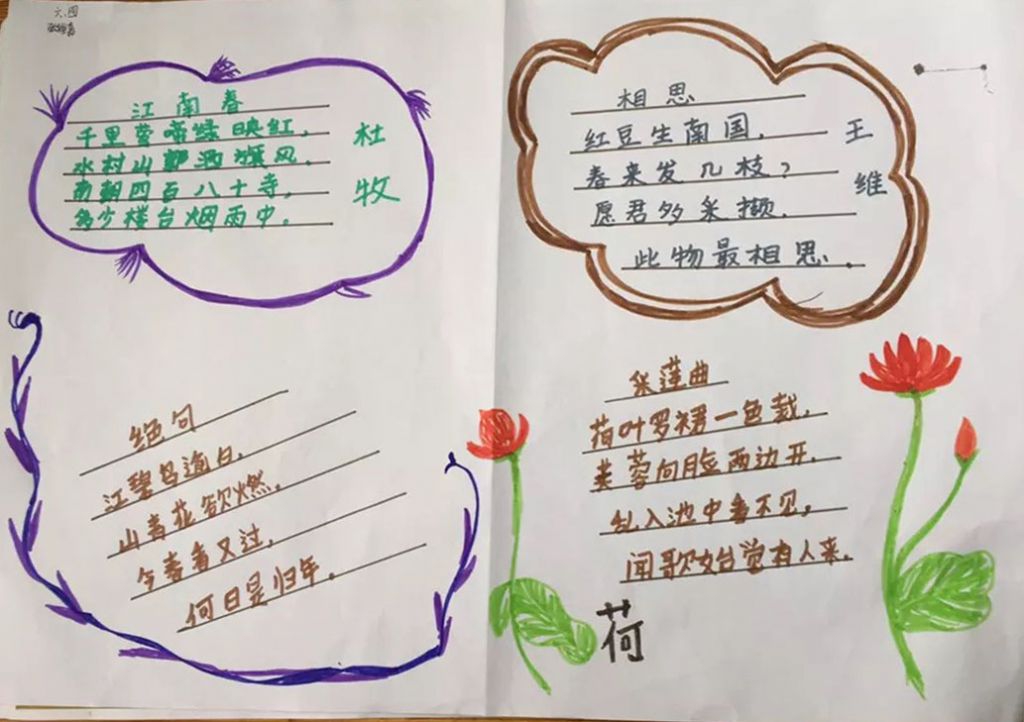 六.四
江南春
千里莺啼绿映红,
水村山郭酒旗风.
南朝四百八十寺,
多少楼台烟雨中。
杜牧
相思
红豆生南国.
春来发几枝?
愿君多采撷.
此物最相思.
王维
绝句
江碧鸟逾白.
山青花欲燃.
今春看又过,
何日是归年。
采莲曲
荷叶罗裙一色裁.
芙蓉向脸两边开.
乱入池中看不见,
闻歌始觉有人来.
荷